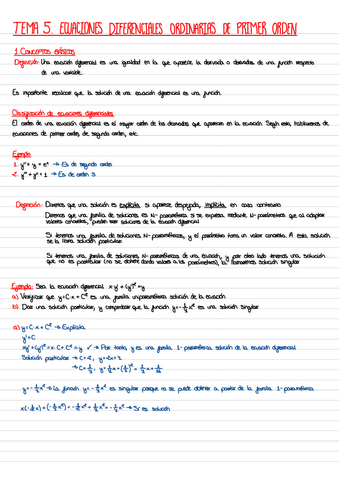 TEMA 5. ECUACIONES DIFERENCIALES ORDINARIAS DE PRIMER ORDEN
1. CONCEPTOS BÁSICOS
Definición: Una ecuación diferencial es una igualdad en la que aparece la derivada o derivadas de una función respecto
de una variable.
Es importante recalcar que la solución de una ecuación diferencial es una función.
Clasificación de ecuaciones diferenciales
El orden de una ecuación diferencial es el mayor orden de las derivadas que aparecen en la ecuación. Según esto, hablaremos de
ecuaciones de primer orden, de segundo orden, etc.
Ejemplo
1. y'' + y = eˣ → Es de segundo orden
2. y''' + y' = 1 → Es de orden 3
Definición: Diremos que una solución es explícita si aparece despejada, implícita en caso contrario
Diremos que una familia de soluciones es N-paramétrica si se expresa mediante N-parámetros que al adoptar
valores concretos, pueden ser soluciones de la ecuación diferencial
Si tenemos una familia de soluciones N-paramétricas, y el parámetro toma un valor concreto. A esta solución
se la llama solución particular.
Si tenemos una familia de soluciones N-paramétricas de una ecuación, y por otro lado tenemos una solución
que no es particular (no se obtiene dando valores a los parámetros), la llamaremos solución singular
Ejemplo: Sea la ecuación diferencial xy' + (y')² = y
a) Verificar que y = C·x + C² es una familia uniparamétrica solución de la ecuación
b) Dar una solución particular, y comprobar que la función y = -¼x² es una solución singular
a) y = C·x + C² → Explícita
y' = C
xy' + (y')² = x·C + C² = y ✓ → Por tanto, y es una familia 1-paramétrica solución de la ecuación diferencial
Solución particular → C = 1, y = 1x + 1
→ C = ½, y = ½x + (½)² = ½x + ¼
y = -¼x² → La función y = -¼x² es singular porque no se puede obtener a partir de la familia 1-paramétrica
x(-½x) + (-½x)² = -½x² + ¼x² = -¼x² → Sí es solución